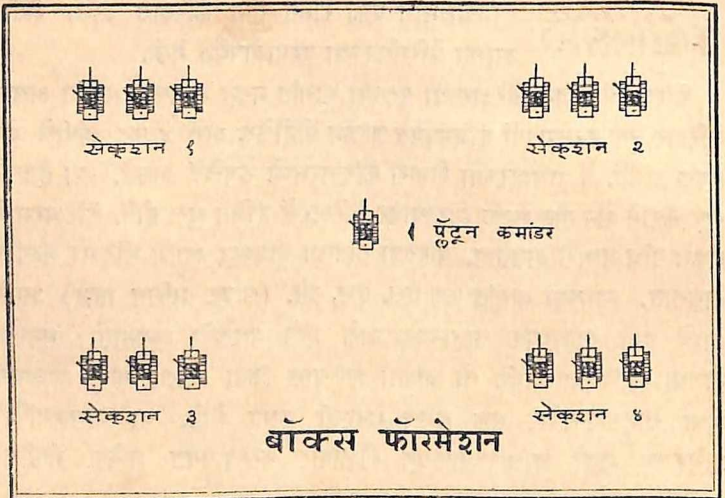 सेक्शन १
सेक्शन २
१ प्लॅटून कमांडर
सेक्शन ३
सेक्शन ४
बॉक्स फॉरमेशन